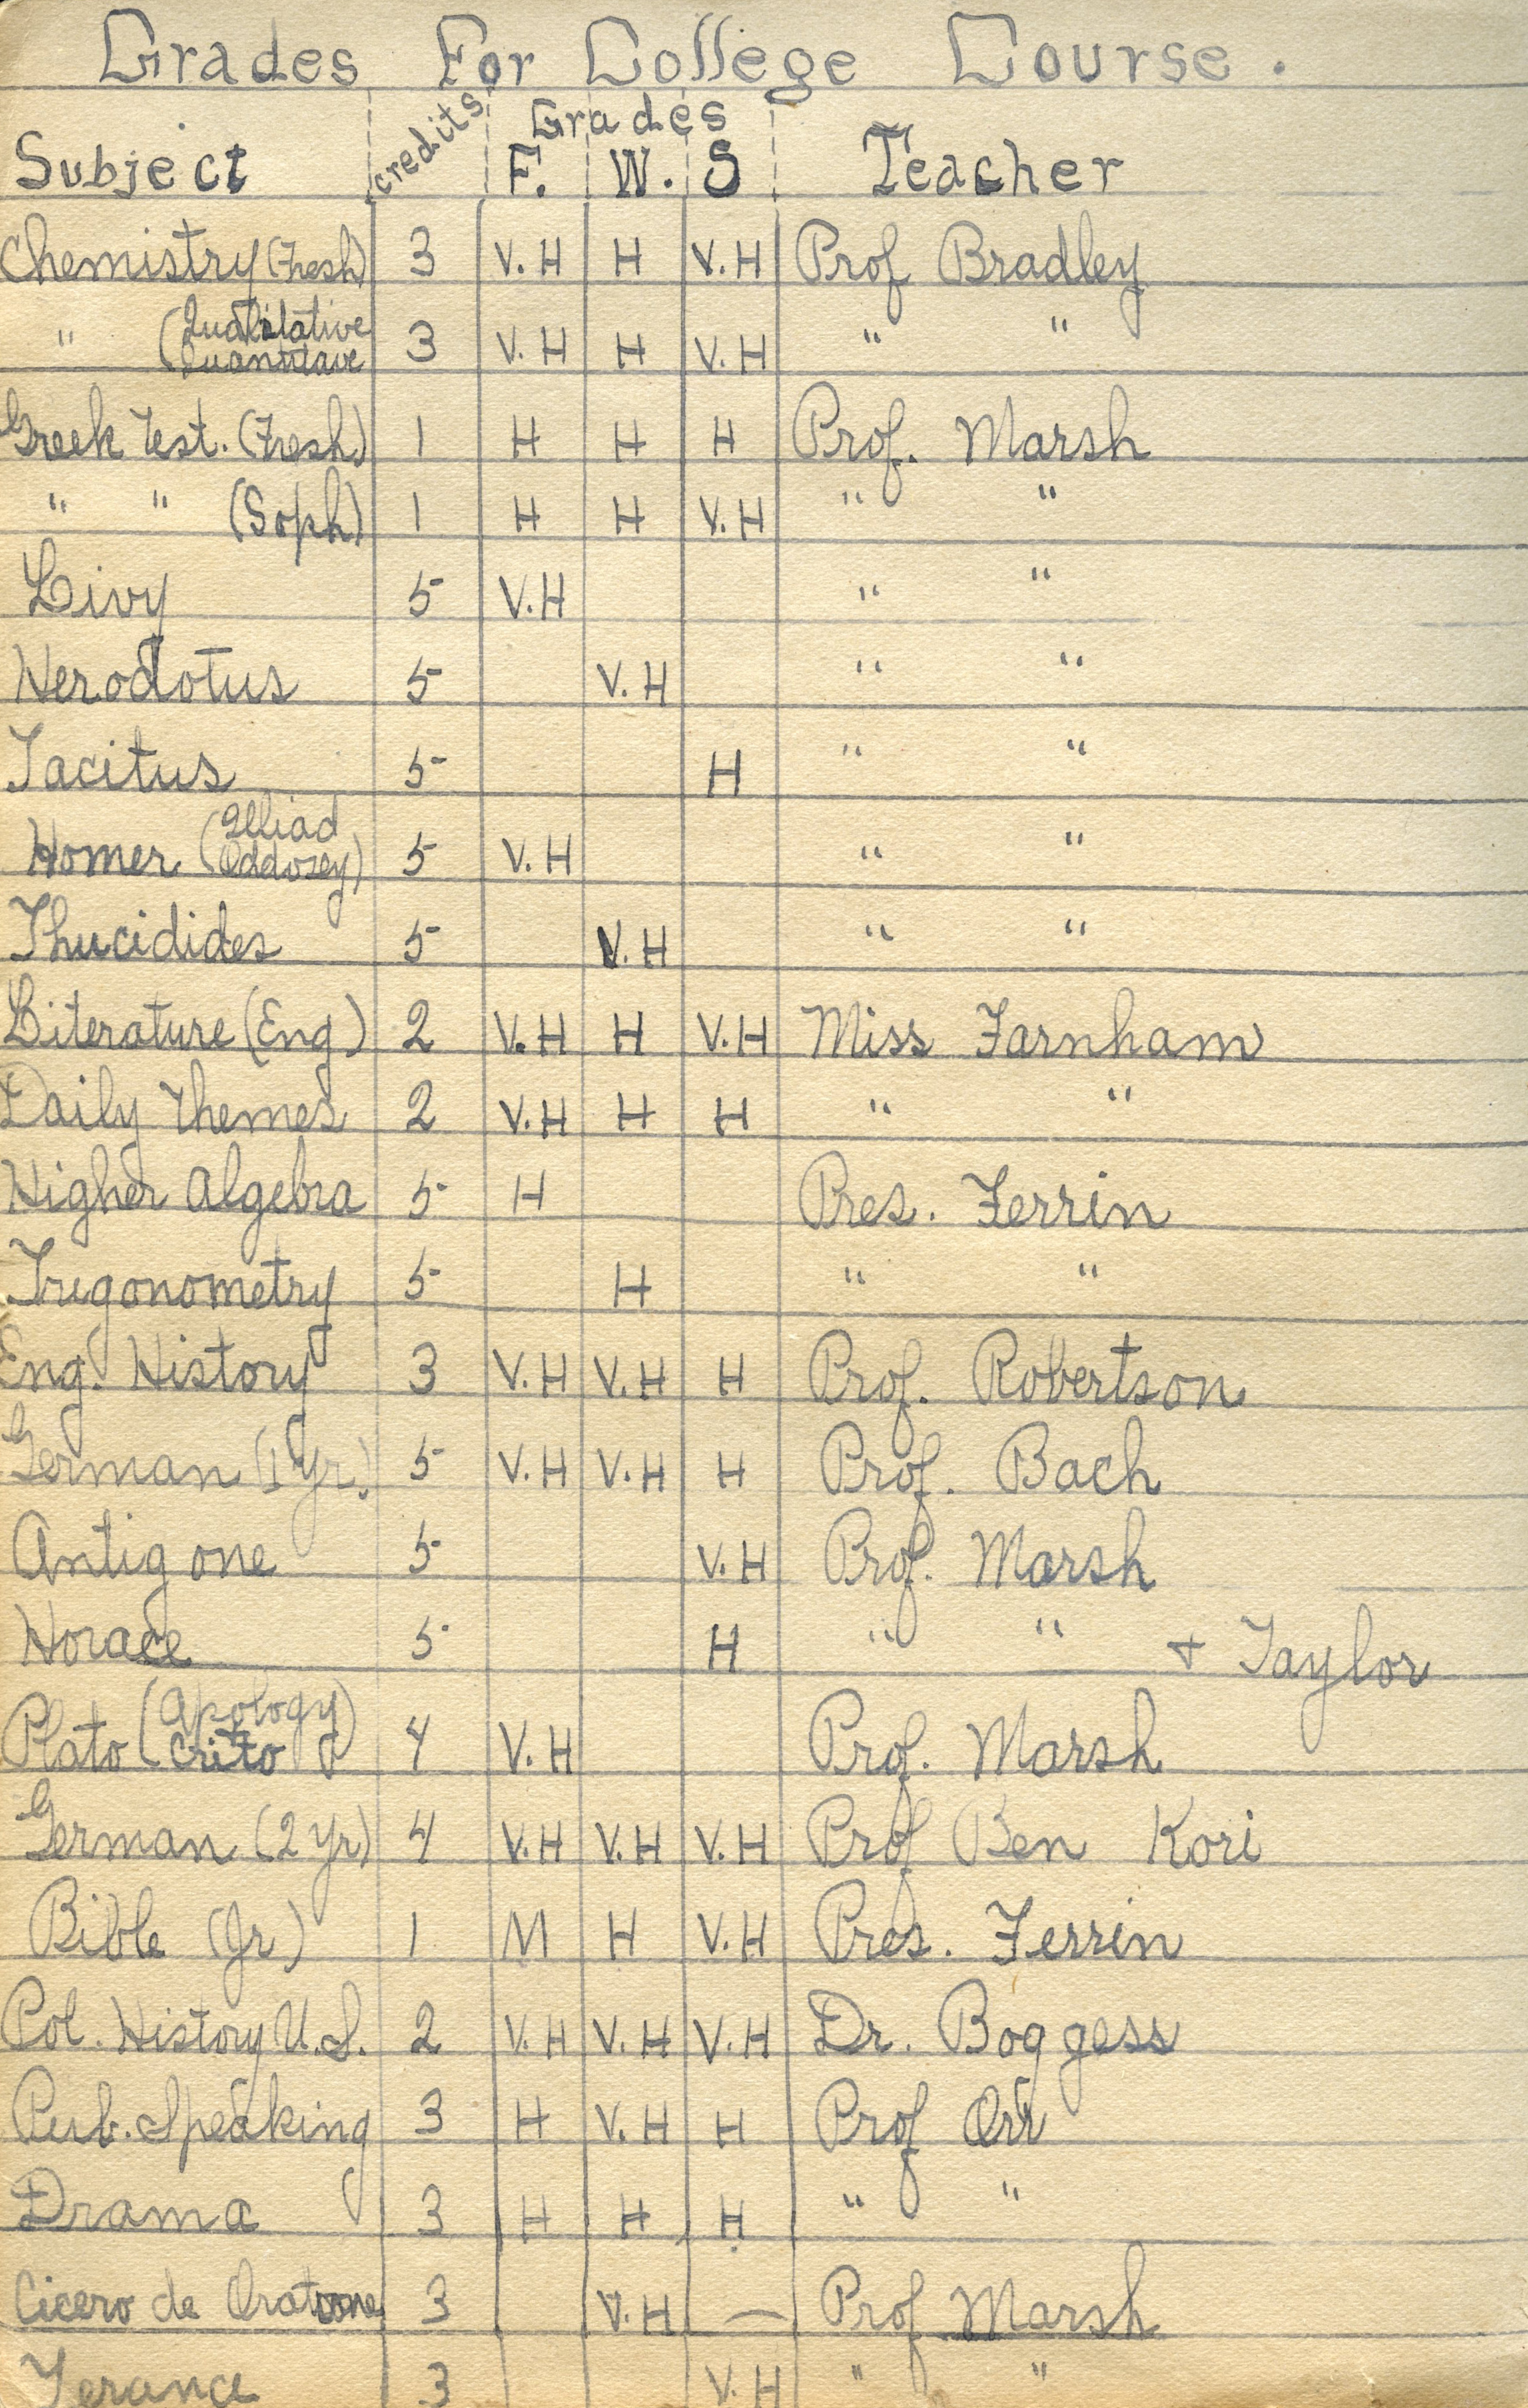 Grades For College Course.
Subject credits Grades Teacher
F. W. S
Chemistry (Fresh) 3 V.H H V.H Prof Bradley
" (Qualitative Quantitave 3 V.H H V.H " "
Greek Test. (Fresh) 1 H H H Prof. Marsh
" " (Soph) 1 H H V.H " "
Livy 5 V.H " "
Herodotus 5 V.H " "
Tacitus 5 H " "
Homer (Illiad Oddosey) 5 V.H " "
Thucidides 5 V.H " "
Literature (Eng) 2 V.H H V.H Miss Farnham
Daily Themes 2 V.H H H " "
Higher Algebra 5 H Pres. Ferrin
Trigonometry 5 H " "
Eng. History 3 V.H V.H H Prof. Robertson
German (1 Yr.) 5 V.H V.H H Prof. Bach
Antigone 5 V.H Prof. Marsh
Horace 5 H " " + Taylor
Plato (Apology) Crito 4 V.H Prof. Marsh
German (2 Yr) 4 V.H V.H V.H Prof Ben Kori
Bible (Jr) 1 M H V.H Pres. Ferrin
Pol. History U.S. 2 V.H V.H V.H Dr. Boggess
Pub. Speaking 3 H V.H H Prof Orr
Drama 3 H H H " "
Cicero de Oratore 3 V.H — Prof Marsh
Terance 3 V.H " "